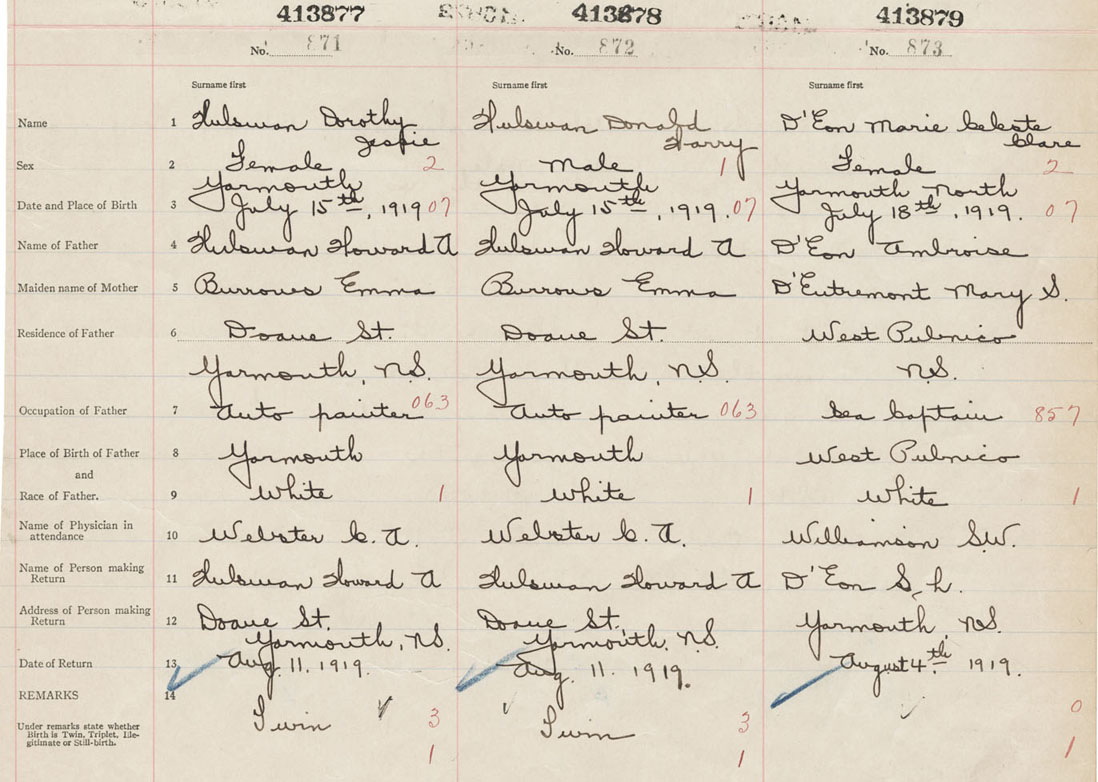 413877 413878 413879
No. 871 No. 872 No. 873
Surname first Surname first Surname first
Name 1 Hulsman Dorothy Jessie Hulsman Donald Harry D'Eon Marie Celeste Clare
Sex 2 Female 2 Male 1 Female 2
Yarmouth Yarmouth Yarmouth North
Date and Place of Birth 3 July 15th, 1919 07 July 15th, 1919. 07 July 18th, 1919. 07
Name of Father 4 Hulsman Howard A Hulsman Howard A D'Eon Ambroise
Maiden name of Mother 5 Burrows Emma Burrows Emma D'Entremont Mary S.
Residence of Father 6 Doane St. Doane St. West Pubnico
Yarmouth, N.S. Yarmouth, N.S. N.S.
Occupation of Father 7 Auto painter 063 Auto painter 063 Sea Captain 857
Place of Birth of Father 8 Yarmouth Yarmouth West Pubnico
and
Race of Father. 9 White 1 White 1 White 1
Name of Physician in
attendance 10 Webster C. A. Webster C. A. Williamson S.W.
Name of Person making
Return 11 Hulsman Howard A Hulsman Howard A D'Eon S. L.
Address of Person making
Return 12 Doane St. Doane St. Yarmouth, N.S.
Yarmouth, N.S. Yarmouth, N.S.
Date of Return 13 Aug. 11. 1919. Aug. 11. 1919. August 4th. 1919.
REMARKS 14 0
Under remarks state whether
Birth is Twin, Triplet, Ille-
gitimate or Still-birth.
Twin 3 Twin 3
1 1 1